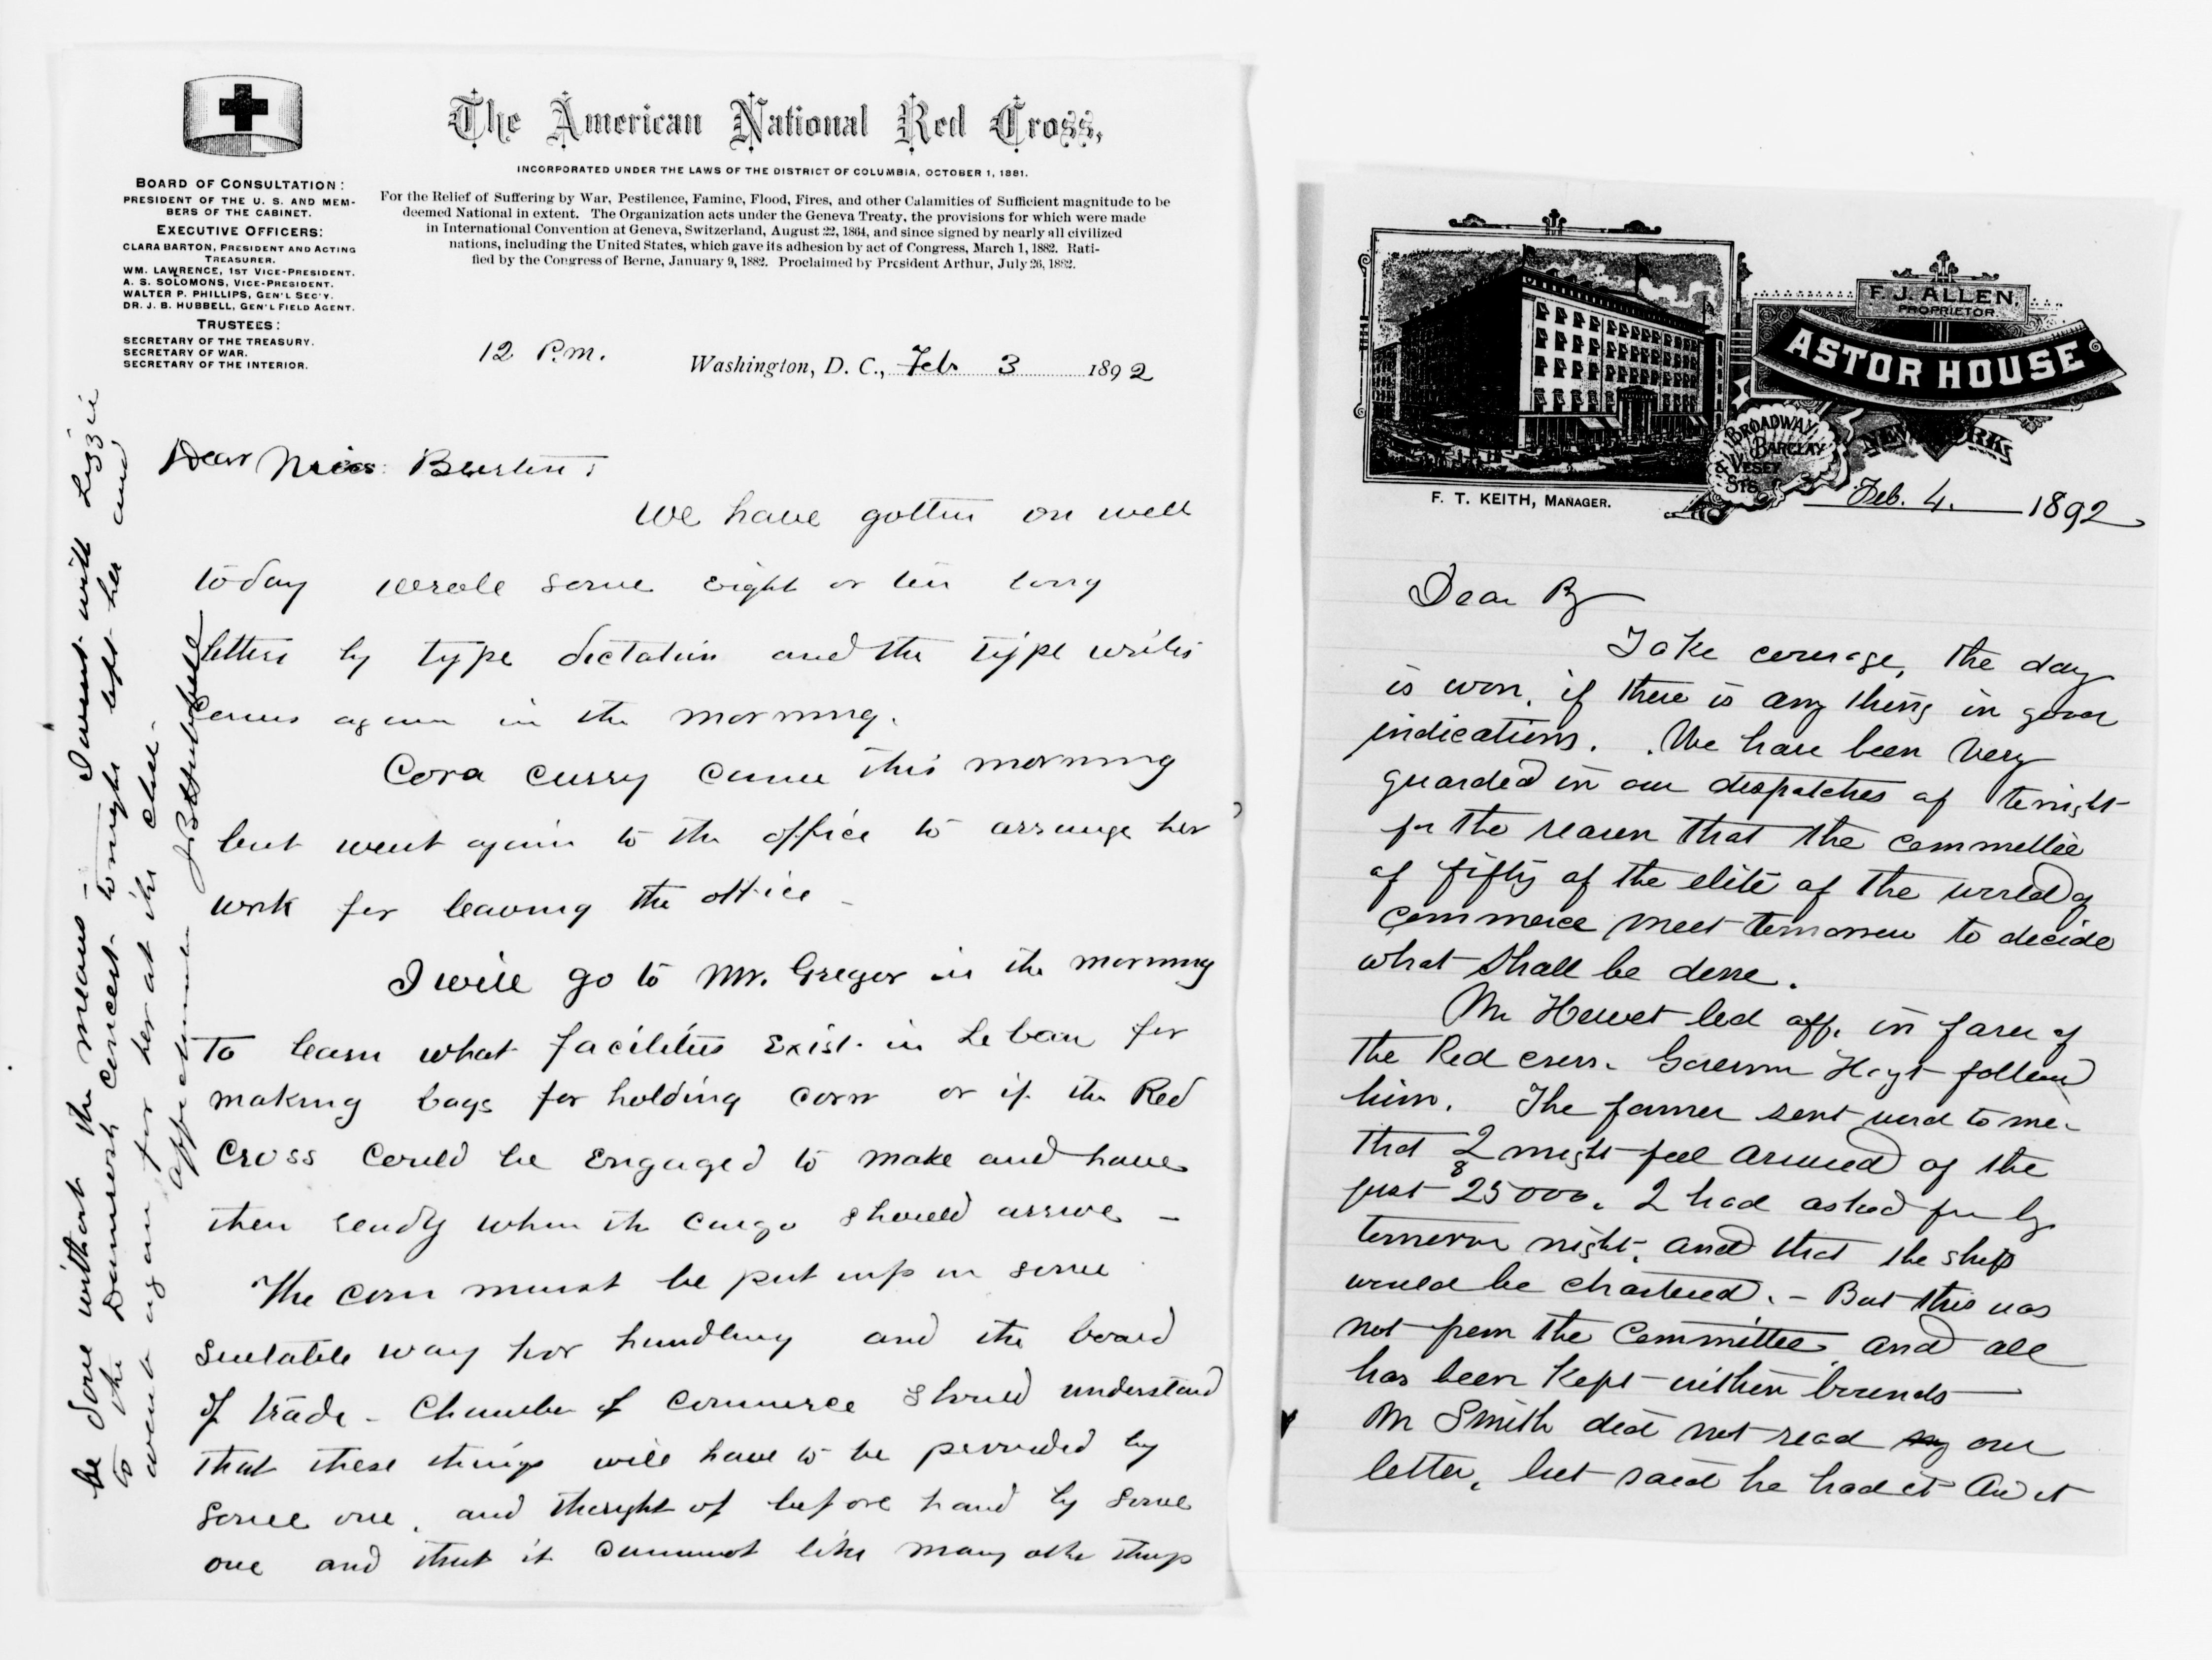 The American National Red Cross,
INCORPORATED UNDER THE LAWS OF THE DISTRICT OF COLUMBIA, OCTOBER 1, 1881.
For the Relief of Suffering by War, Pestilence, Famine, Flood, Fires, and other Calamities of Sufficient magnitude to be
deemed National in extent. The Organization acts under the Geneva Treaty, the provisions for which were made
in International Convention at Geneva, Switzerland, August 22, 1864, and since signed by nearly all civilized
nations, including the United States, which gave its adhesion by act of Congress, March 1, 1882. Rati-
fied by the Congress of Berne, January 9, 1882. Proclaimed by President Arthur, July 26, 1882.
BOARD OF CONSULTATION:
PRESIDENT OF THE U. S. AND MEM-
BERS OF THE CABINET.
EXECUTIVE OFFICERS:
CLARA BARTON, PRESIDENT AND ACTING
TREASURER.
WM. LAWRENCE, 1ST VICE-PRESIDENT.
A. S. SOLOMONS, VICE-PRESIDENT.
WALTER P. PHILLIPS, GEN'L SEC'Y.
DR. J. B. HUBBELL, GEN'L FIELD AGENT.
TRUSTEES:
SECRETARY OF THE TREASURY.
SECRETARY OF WAR.
SECRETARY OF THE INTERIOR.
12 P.m.
Washington, D. C., Feb 3 1892
Dear Miss Barton;
We have gotten on well
today wrote some eight or ten long
letters by type dictation and the type writer
comes again in the morning.
Cora Curry came this morning
but went again to the office to arrange her
work for leaving the office -
I will go to Mr. Gregor in the morning
To learn what facilities exist in for
making bags for holding corn or if the Red
Cross could be engaged to make and have
then ready when the cargo should arrive -
The corn must be put up in some
suitable way for handling and the board
of trade - Chamber of Commerce should understand
that these things will have to be provided by
some one, and thought of before hand by some
one and that it cannot like many other things
be done without the means - I went with Lizzie
to the concert tonight left her and
went again for her at the close -
J B Hubbell
F. J. ALLEN,
PROPRIETOR
ASTOR HOUSE
BROADWAY,
BARCLAY
& VESEY
STS
NEW YORK
F. T. KEITH, MANAGER.
Feb. 4. 1892
Dear B
Take courage, the day
is won, if there is any thing in good
indications. We have been very
guarded in our despatches of tonight
for the reason that the committee
of fifty of the elite of the world of
commerce meet tomorrow to decide
what shall be done.
Mr Hewet led off in favor of
the Red cross. Governor Hoyt followed
him. The former sent word to me
that I might feel assured of the
first $25000. I had asked for by
tomorrow night, and that the ship
would be chartered. - But this was
not from the Committee and all
has been kept within bounds
Mr Smith did not read our
letter, but said he had it